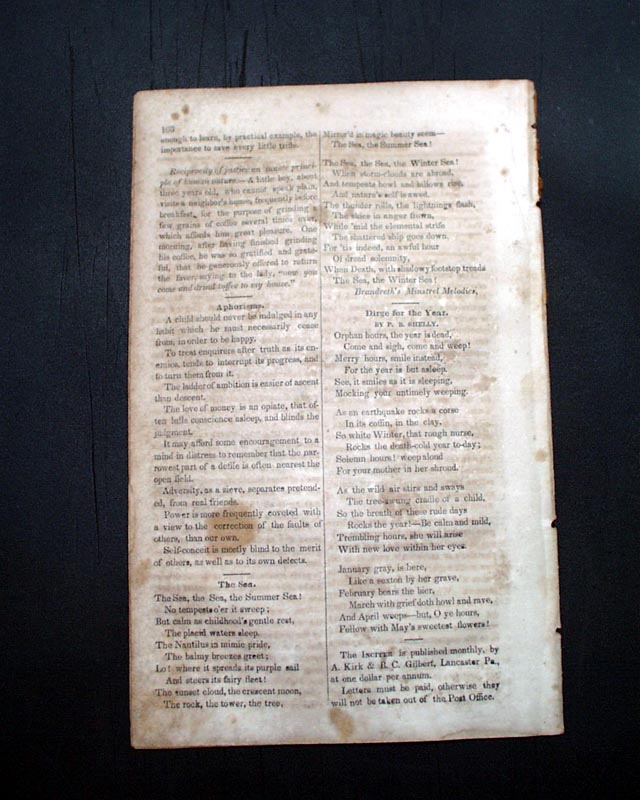 enough to learn, by practical example, the
importance to save every little trifle.
Reciprocity of justice an innate princi-
ple of human nature.—A little boy, about
three years old, who cannot speak plain,
visits a neighbor's house, frequently before
breakfast, for the purpose of grinding a
few grains of coffee several times over,
which affords him great pleasure. One
morning, after having finished grinding
his coffee, he was so gratified and grate-
ful, that he generously offered to return
the favor, saying to the lady, "now you
come and drink toffee to my house."
Aphorisms.
A child should never be indulged in any
habit which he must necessarily cease
from, in order to be happy.
To treat enquirers after truth as its en-
emies, tends to interrupt its progress, and
to turn them from it.
The ladder of ambition is easier of ascent
than descent.
The love of money is an opiate, that of-
ten lulls conscience asleep, and blinds the
judgment.
It may afford some encouragement to a
mind in distress to remember that the nar-
rowest part of a defile is often nearest the
open field.
Adversity, as a sieve, separates pretend-
ed, from real friends.
Power is more frequently coveted with
a view to the correction of the faults of
others, than our own.
Self-conceit is mostly blind to the merit
of others, as well as to its own defects.
The Sea.
The Sea, the Sea, the Summer Sea!
No tempests o'er it sweep;
But calm as childhood's gentle rest,
The placid waters sleep.
The Nautilus in mimic pride,
The balmy breezes greet;
Lo! where it spreads its purple sail
And steers its fairy fleet!
The sunset cloud, the crescent moon,
The rock, the tower, the tree,
Mirror'd in magic beauty seem—
The Sea, the Summer Sea!
The Sea, the Sea, the Winter Sea!
When storm-clouds are abroad,
And tempests howl and billows rise,
And nature's self is awed.
The thunder rolls, the lightnings flash,
The skies in anger frown,
While 'mid the elemental strife
The shattered ship goes down.
For 'tis indeed, an awful hour
Of dread solemnity,
When Death, with shadowy footstep treads
The Sea, the Winter Sea!
Brandreth's Minstrel Melodies,
Dirge for the Year.
BY P. B. SHELLY.
Orphan hours, the year is dead,
Come and sigh, come and weep!
Merry hours, smile instead,
For the year is but asleep.
See, it smiles as it is sleeping,
Mocking your untimely weeping.
As an earthquake rocks a corse
In its coffin, in the clay,
So white Winter, that rough nurse,
Rocks the death-cold year to-day;
Solemn hours! weep aloud
For your mother in her shroud.
As the wild air stirs and sways
The tree-swung cradle of a child,
So the breath of these rude days
Rocks the year!—Be calm and mild,
Trembling hours, she will arise
With new love within her eyes.
January gray, is here,
Like a sexton by her grave,
February bears the bier,
March with grief doth howl and rave,
And April weeps—but, O ye hours,
Follow with May's sweetest flowers!
is published monthly, by
A. Kirk & R. C. Gilbert, Lancaster Pa.,
at one dollar per annum.
Letters must be paid, otherwise they
will not be taken out of the Post Office.